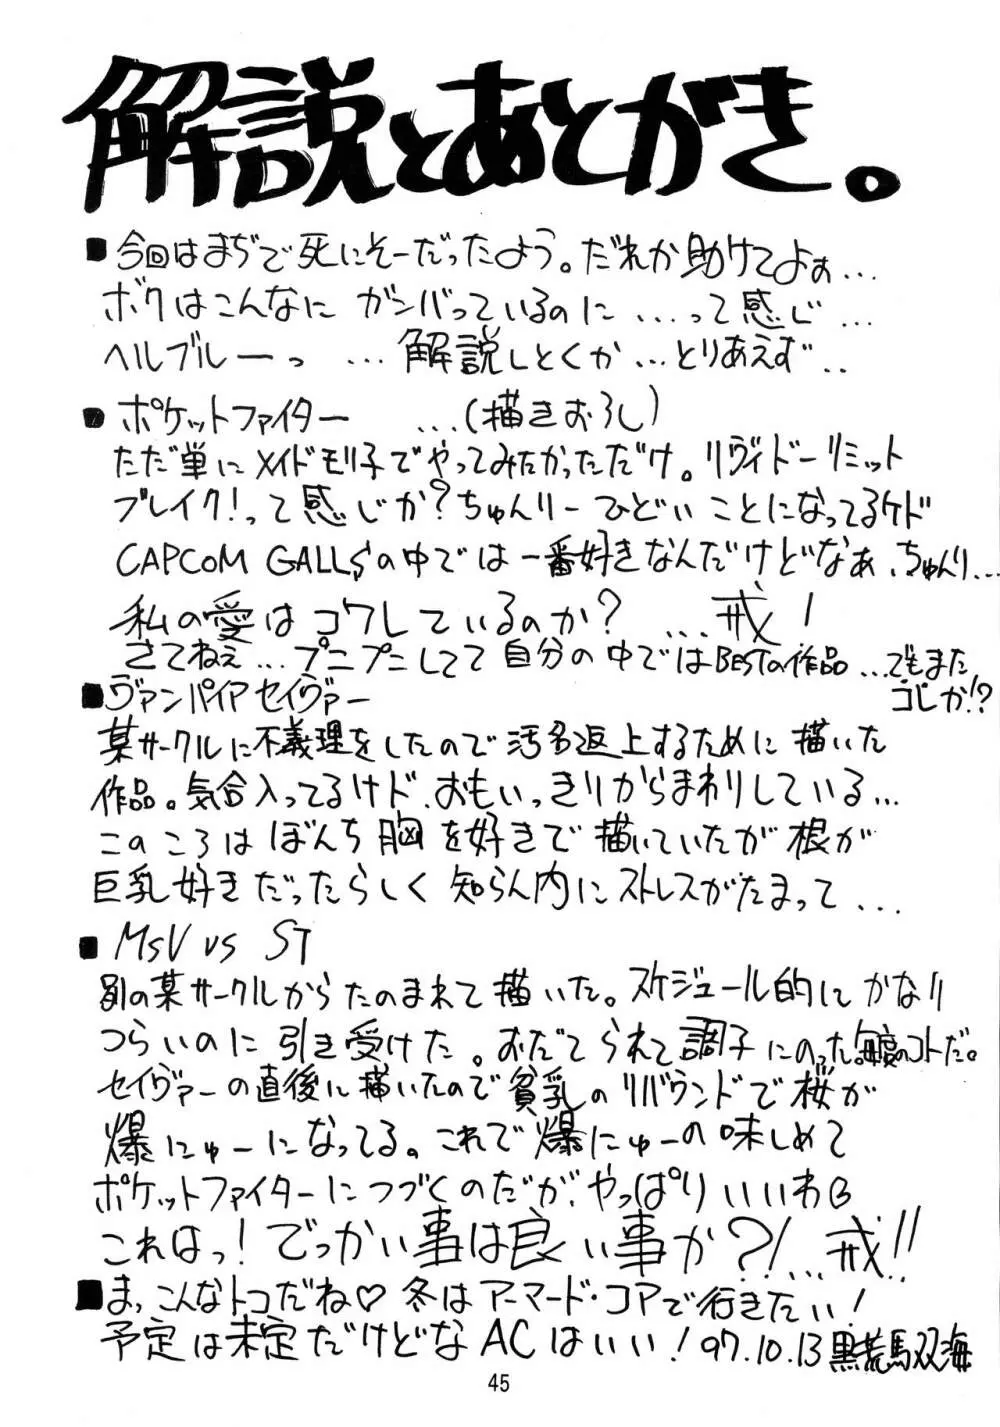 解説とあとがき。
■今回はまぢで死にそーだったよう。だれか助けてよぉ…
ボクはこんなに ガンバっているのに …って感じ…
ヘルブルーっ …解説しとくか…とりあえず..
■ポケットファイター …(描きおろし)
ただ単にメイドモリ子でやってみたかっただけ。リヴィドーリミット
ブレイク!って感じか?ちゅんりー ひどい ことになってるケド
CAPCOM GALLSの中では一番好きなんだけどなぁ、ちゅんり…
私の愛はコワレているのか? …戒!
さてねぇ…プニプニしてて 自分の中ではBESTの作品…でもまた
コレか!?
■ヴァンパイアセイヴァー
某サークルに不義理をしたので汚名返上するために描いた
作品。気合入ってるけド、おもいっきりからまわりしている…
このころは ぼんち 胸を好きで描いていたが根が
巨乳好きだったらしく 知らん内にストレスがたまって...
■MSV vs ST
別の某サークルからたのまれて描いた。スケジュール的にかなり
つらいのに 引き受けた。おだてられて調子にのった。毎度のコトだ。
セイヴァーの直後に描いたので貧乳のリバウンドで桜が
爆にゅーになってる。これで爆にゅーの味しめて
ポケットファイターにつづくのだが、やっぱり いいわ
これはっ!でっかい事は良い事か?!…戒!!
■まっこんなトコだね♡ 冬はアーマード・コアで行きたい!
予定は未定だけどなACはいい!97.10.13黒荒馬双海
45